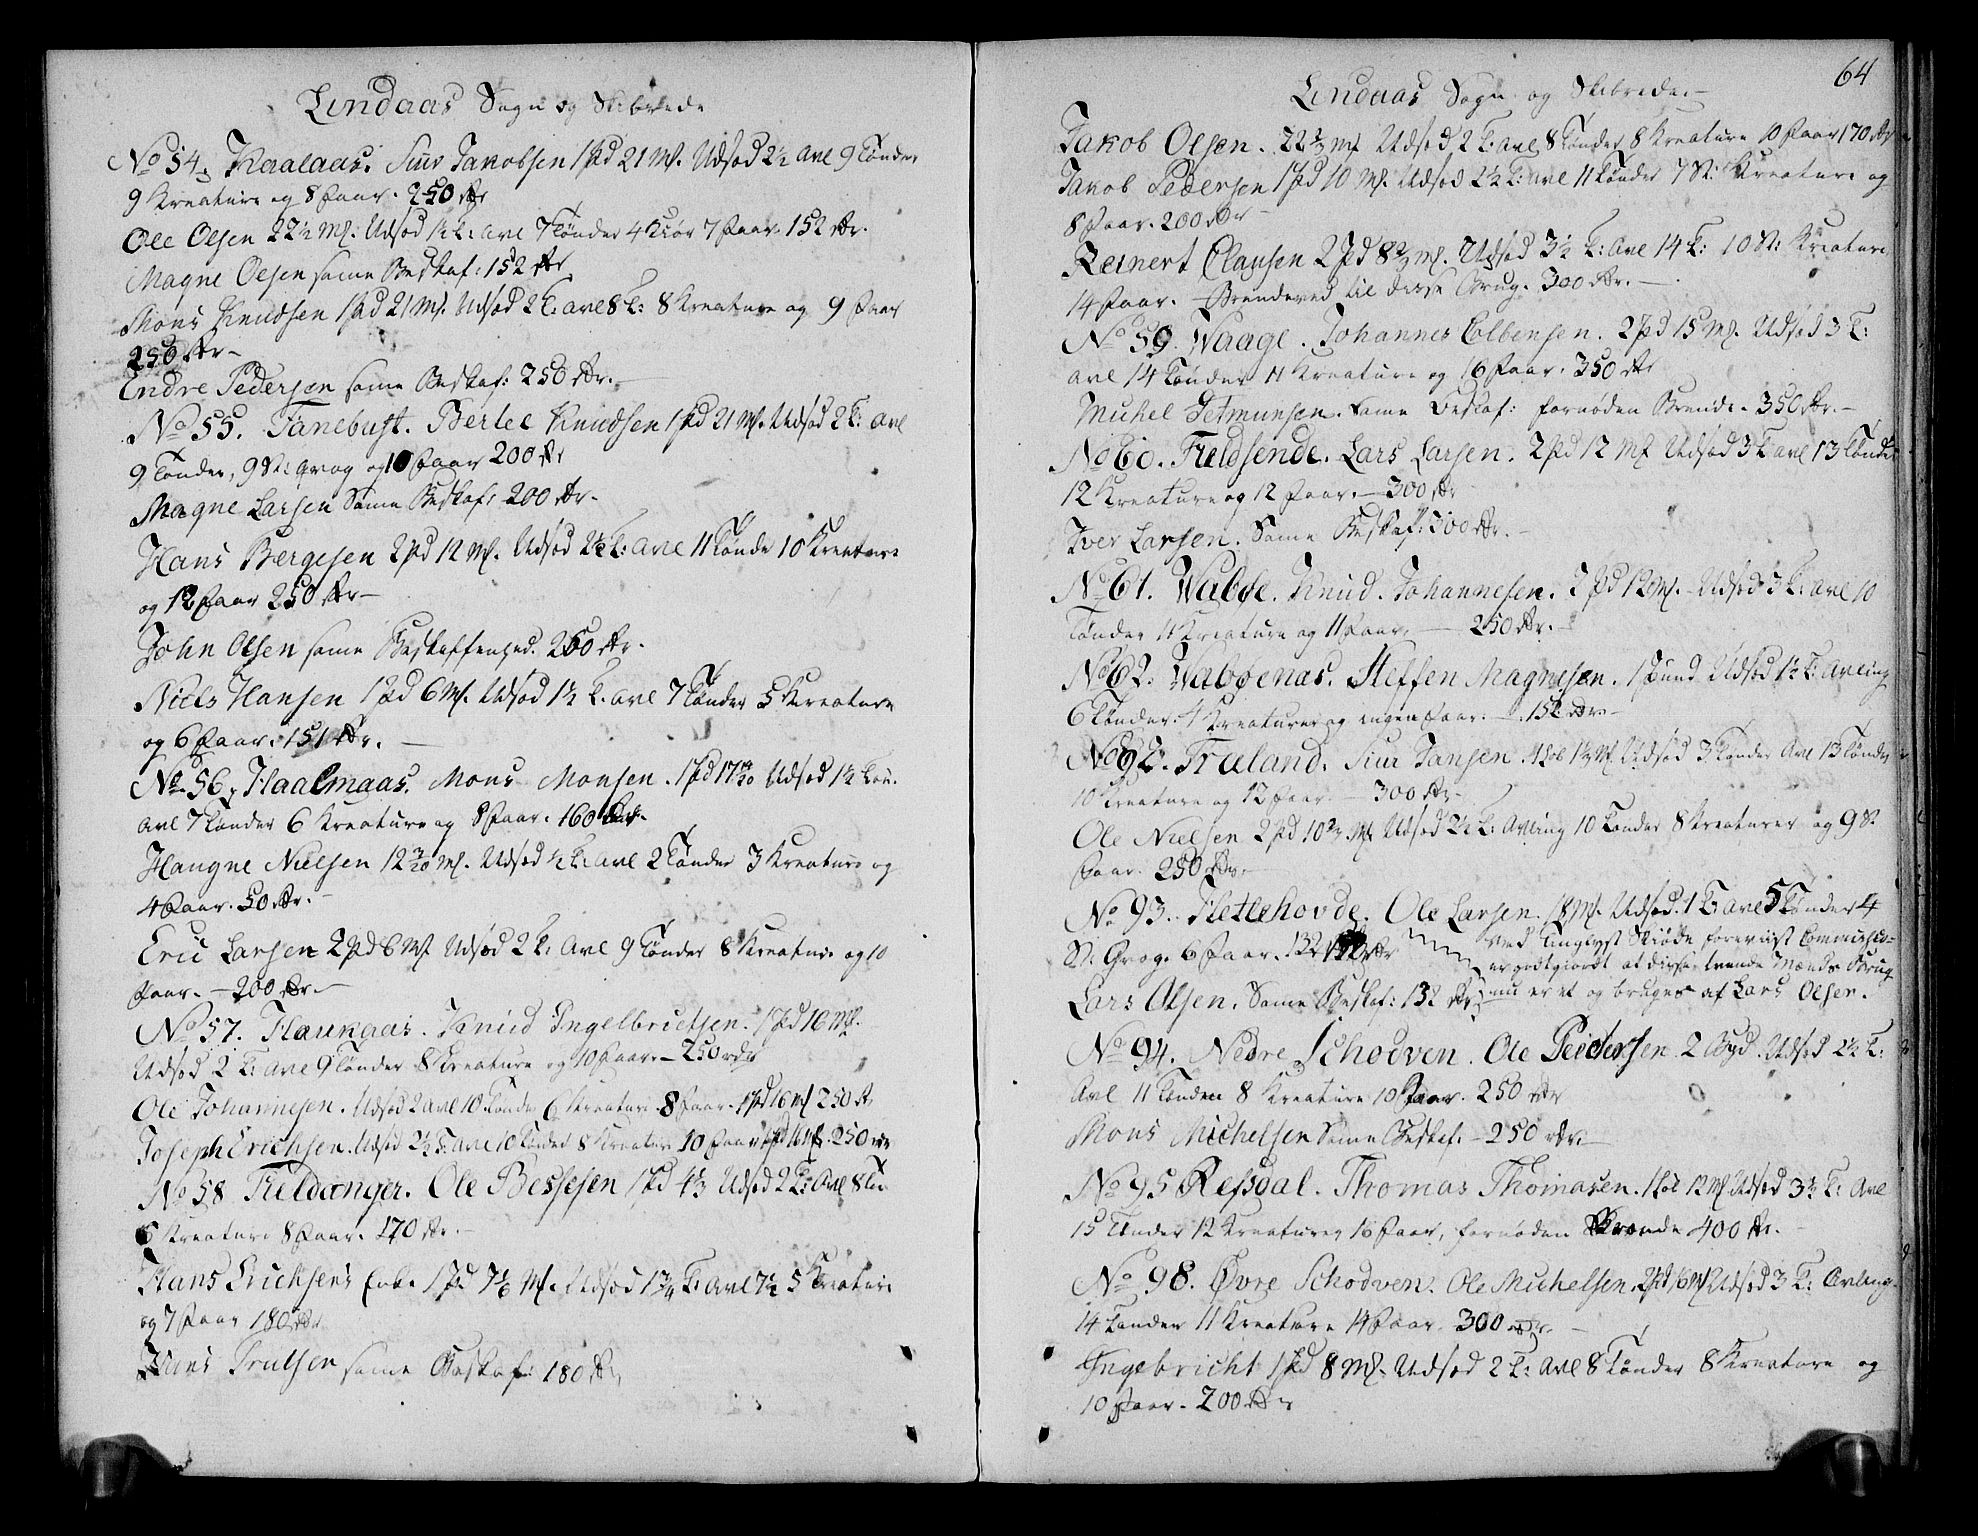 Lindaas Sogn og Skibrede
No 54. Kaalaas. Siur Jakobsen 1 Pd 21 Mk. Udsæd 2½ avl 9 Tønder
9 Kreature og 8 Faar. 250 Rdr
Ole Olsen 22½ Mk. Udsæd 1½ T: avl 7 Tønder 4 Kiør 7 Faar. 152 Rdr.
Magne Olsen same Beskaf: 152 Rdr
Mons Knudsen 1 Pd 21 Mk. Udsæd 2 T: avl 8 T: 8 Kreature og 9 Faar
250 Rdr
Endre Pedersen same Beskaf: 250 Rdr.
No 55. Fanebust. Berle Knudsen 1 Pd 21 Mk. Udsæd 2 T: avl
9 Tønder, 9 St: qvæg og 10 Faar 200 Rdr
Magne Larsen Same Beskaf: 200 Rdr.
Hans Bergesen 2 Pd 12 Mk. Udsæd 2½ T: avl 11 Tønde 10 Kreature
og 12 Faar 250 Rdr
John Olsen same Beskaffenhed. 260 Rdr.
Niels Hansen 1 Pd 6 Mk. Udsæd 1½ T: avl 7 Tønder 5 Kreature
og 6 Faar. 151 Rdr.
No 56. Haalmaas. Mons Monsen. 1 Pd 17 Udsæd 1½ Tøn.
avl 7 Tønder 6 Kreature og 8 Faar. 160 Rdr.
Haugne Nielsen 12 Mk. Udsæd ½ T: avl 2 Tønder 3 Kreature og
4 Faar. 50 Rdr.
Eric Larsen 2 Pd 6 Mk Udsæd 2 T: avl 9 Tønder 8 Kreature og 10
Faar. 200 Rdr.
No 57. Haukaas. Knud Ingelbrietsen. 1 Pd 16 Mk.
Udsæd 2 T: avl 9 Tønder 8 Kreature og 10 Faar. 250 rdr
Ole Johannesen. Udsæd 2 avl 10 Tønder 6 Kreature 8 Faar. 1 Pd 16 Mk 250 Rdr
Joseph Erichsen. Udsæd 2½ T: avl 10 Tønder 8 Kreature 10 Faar 1 Pd 16 Mk. 250 rdr
No 58 Fieldanger. Ole Bessesen 1 Pd 4⅓ Udsæd 2 T: avl 8 Tø:
6 Kreature 8 Faar. 170 Rdr.
Hans Ericksens Enke 1 Pd 7 Mk. Udsæd 1¾ T: avl 7½ 5 Kreature
og 7 Faar 180 Rdr
Hans Trulsen same Beskaf: 180 Rdr

64
Lindaas Sogn og Skibrede.
Jakob Olsen. 22½ Mk Udsæd 2 T: avl 8 Tønder 8 Kreature 10 Faar 170 Rdr
Jakob Pedersen 1 Pd 10 Mk. Udsæd 2½ T: avl 11 Tønder 7 St: Kreature og
8 Faar. 200 Rdr
Reinert Clausen 2 Pd 8⅔ Mk. Udsæd 3½ T: avl 14 T: 10 St: Kreature
14 Faar. Brendeved til deres Brug. 300 Rdr.
No 59. Waage. Johannes Colbensen. 2 Pd 15 Mk. Udsæd 3 T:
avl 14 Tønder 11 Kreature og 16 Faar. 350 Rdr
Michel Detmunsen. Same Beskaf: fornøden Brende. 350 Rdr.
No 60. Fieldsende. Lars Larsen. 2 Pd 12 Mk Udsæd 3 T avl 13 Tønder
12 Kreature og 12 Faar. 300 Rdr
Iver Larsen. Same Beskaf: 300 Rdr.
No 61. Wabøe. Knud Johannesen. 2 Pd 12 Mk. Udsæd 3 T: avl 10
Tønder 11 Kreature og 11 Faar. 250 Rdr.
No 62. Wabøenæs. Steffen Magnesen. 1 Pund Udsæd 1½ T: Avling
6 Tønder. 4 Kreaturer og ingen Faar. 152 Rdr
No 92. Træland. Siur Jansen. 1 Løb 1½ Mk Udsæd 3 Tønder Avl 13 Tønder
10 Kreature og 12 Faar 300 Rdr
Ole Nielsen 2 Pd 10⅔ Mk Udsæd 2½ T: Avling 10 Tønder 8 Kreaturer og 9 St
Faar. 250 Rdr
No 93. Fletlehovde. Ole Larsen. 18 Mk. Udsæd. 1 T: avl 5 Tønder 4
St: Qvæg. 6 Faar. 132 Rdr
ved Tinglyst Skiøde foreviist Commissio=
er godtgiordt at disse tvende Mænds Brug
Lars Olsen. Same Beskaf: 132 Rdr. nu er et og bruges af Lars Olsen.
No 94. Nedre Schodven. Ole Peidersen 2 Pd. Udsæd 2½ T:
Avl 11 Tønder 8 Kreature 10 Faar. 250 Rdr
Mons Michelsen Same Beskaf. 250 rdr.
No 95 Refsdal. Thomas Thomasen. 1 Løb 12 Mk Udsæd 3½ T: Avl
15 Tønder 12 Kreaturer 16 Faar, fornøden Brende 400 Rdr.
No 98. Øvre Schodven. Ole Michelsen. 2 Pd 16 Mk Udsæd 3 T: Avling
14 Tønder 11 Kreature 14 Faar 300 rdr.
Ingebricht 1 Pd 8 Mk. Udsæd 2 T: avl 8 Tønder 8 Kreature og
10 Faar. 200 Rdr